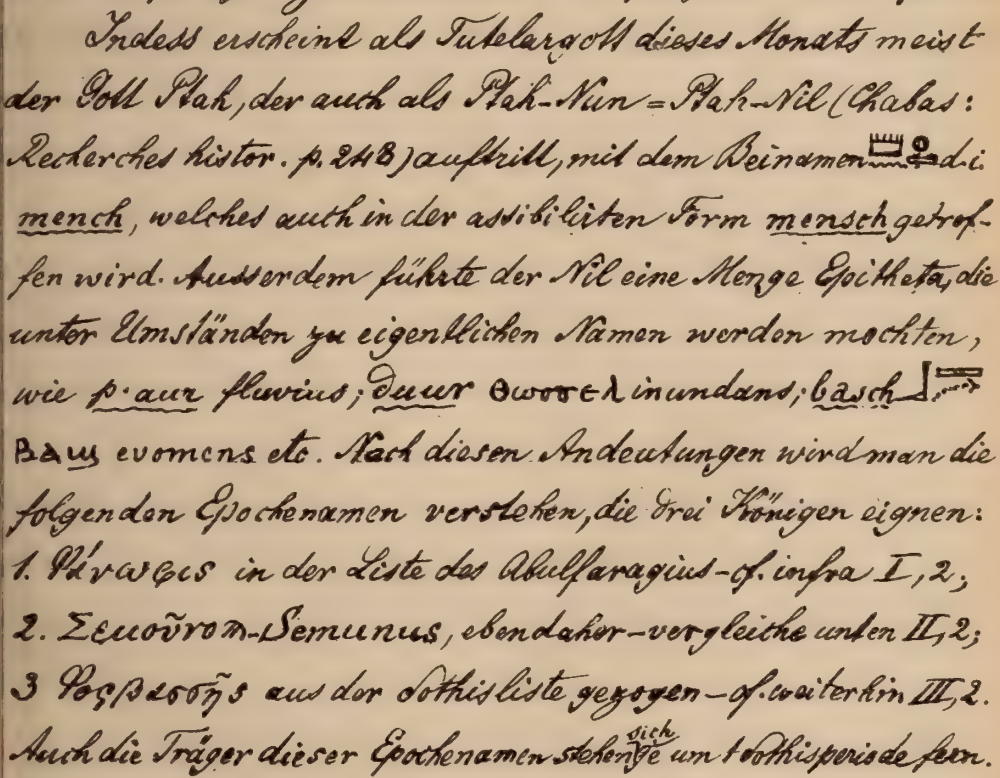 Indess erscheint als Tutelargott dieses Monats meist
der Gott Ptah, der auch als Ptah-Nun = Ptah-Nil (Chabas:
Recherches histor. p. 248) auftritt, mit dem Beinamen d. i.
mench, welches auch in der assibilirten Form mensch getrof-
fen wird. Ausserdem führte der Nil eine Menge Epitheta, die
unter Umständen zu eigentlichen Namen werden mochten,
wie p-aur fluvius; duur inundans; basch
ⲃⲁϣ evomens etc. Nach diesen Andeutungen wird man die
folgenden Epochenamen verstehen, die drei Königen eignen:
1. in der Liste des Abulfaragius – cf. infra I, 2;
2. Semunus, ebendaher – vergleiche unten II, 2;
3 aus der Sothisliste gezogen – cf. weiterhin III, 2.
Auch die Träger dieser Epochenamen stehen sich je um 1 Sothisperiode fern.